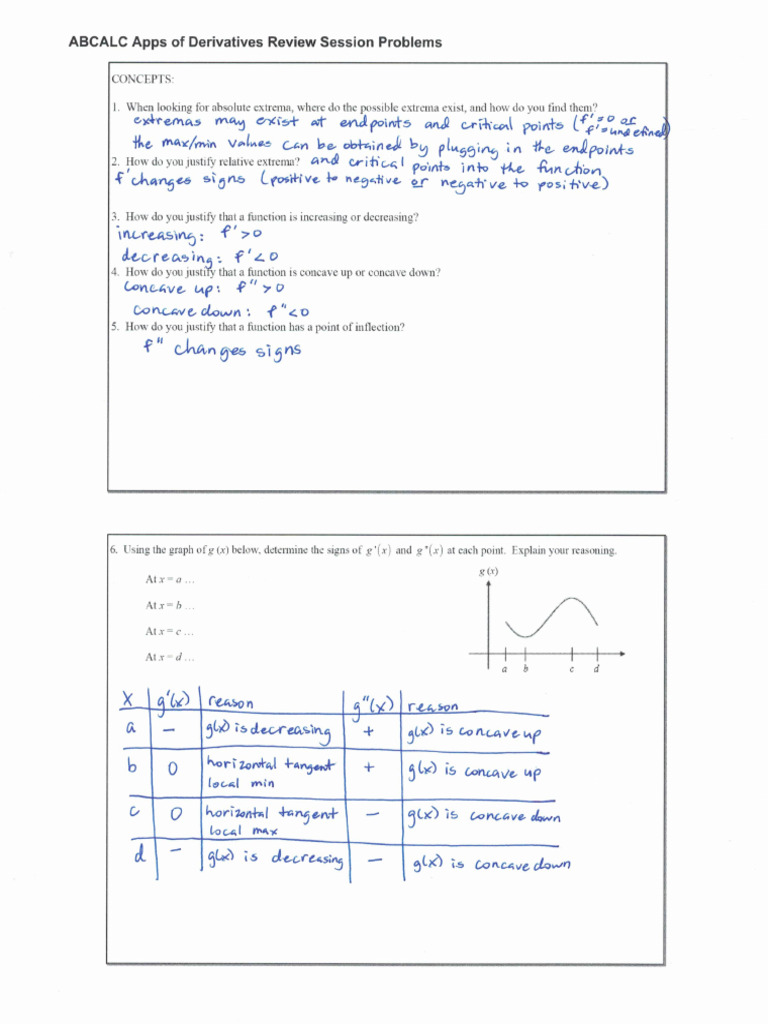 ABCALC Apps of Derivatives Review Session Problems
CONCEPTS:
1. When looking for absolute extrema, where do the possible extrema exist, and how do you find them?
extremas may exist at endpoints and critical points (f'=0 or
f'=undefined)
the max/min values can be obtained by plugging in the endpoints
2. How do you justify relative extrema? and critical points into the function
f' changes signs (positive to negative or negative to positive)
3. How do you justify that a function is increasing or decreasing?
increasing: f'>0
decreasing: f'<0
4. How do you justify that a function is concave up or concave down?
concave up: f">0
concave down: f"<0
5. How do you justify that a function has a point of inflection?
f" changes signs
6. Using the graph of g (x) below, determine the signs of g'(x) and g"(x) at each point. Explain your reasoning.
g (x)
At x = a ...
At x = b ...
At x = c ...
At x = d ...
a b c d
x g'(x) reason g"(x) reason
a − g(x) is decreasing + g(x) is concave up
b 0 horizontal tangent + g(x) is concave up
local min
c 0 horizontal tangent − g(x) is concave down
local max
d − g(x) is decreasing − g(x) is concave down